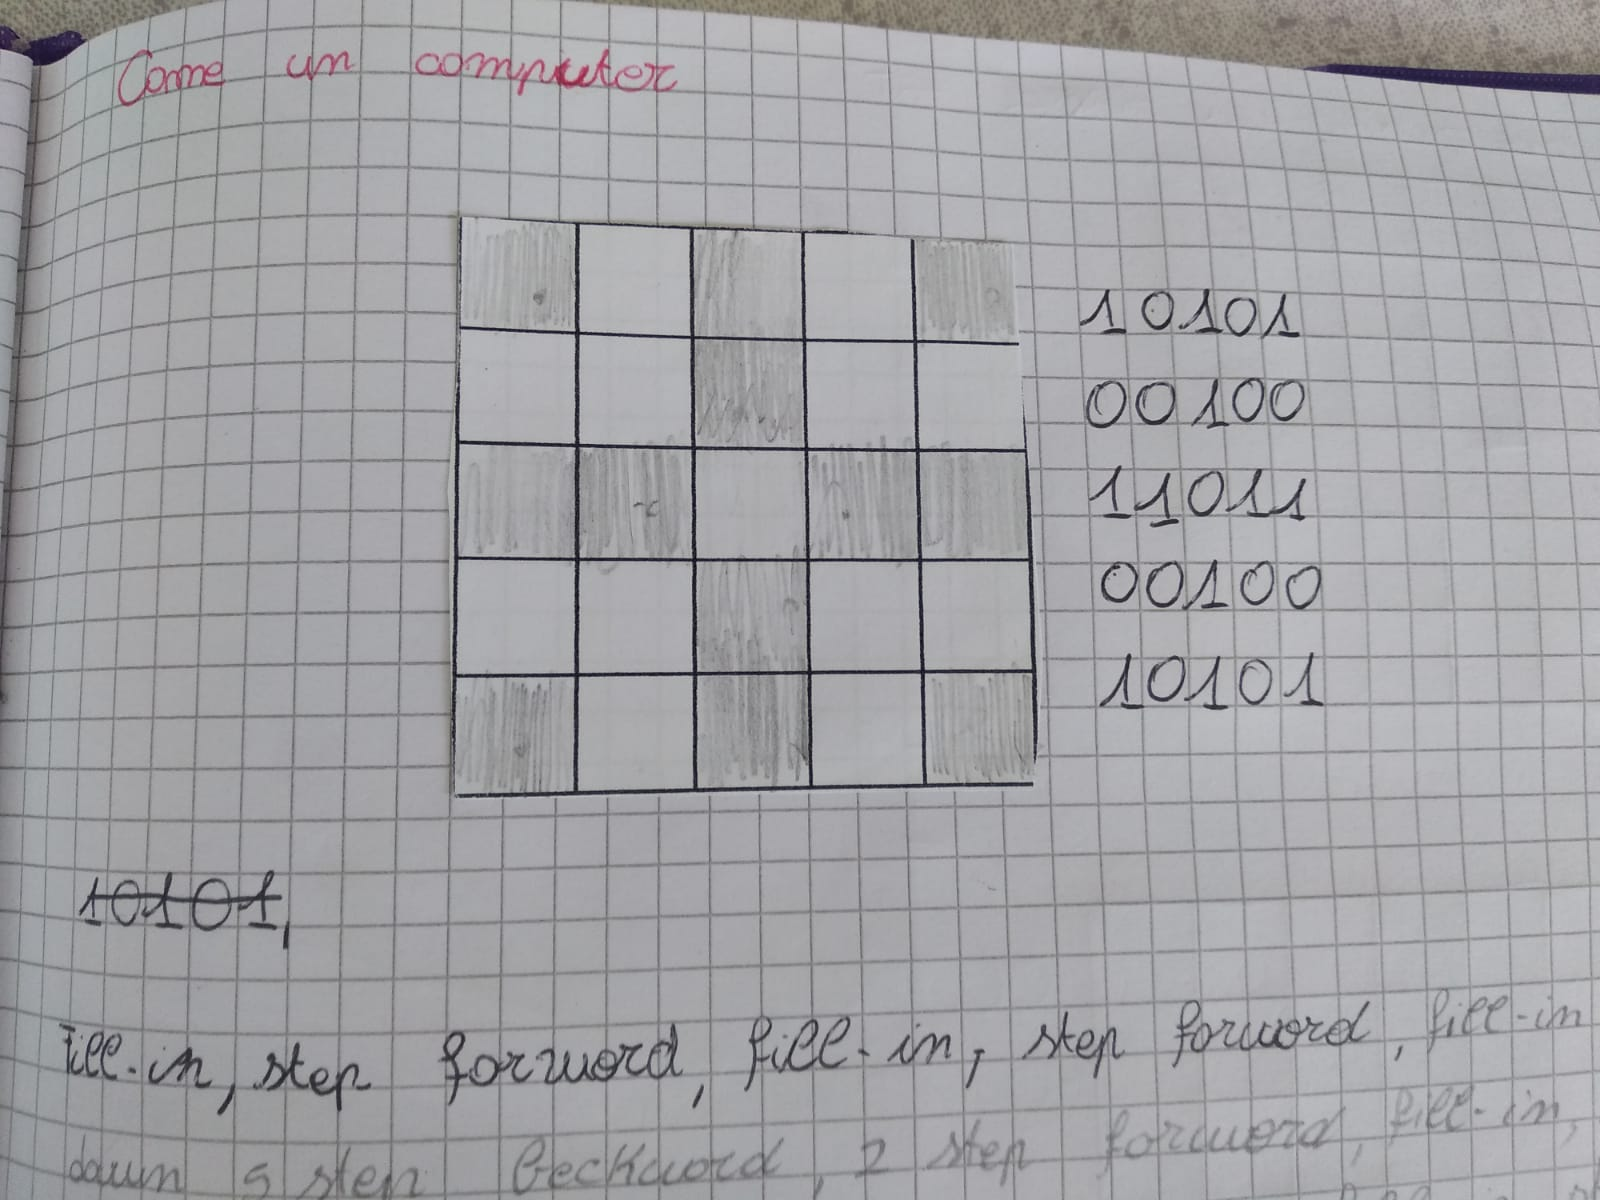 Come un computer
10101
00100
11011
00100
10101
10101,
Fill-in, step forword, fill-in, step forword, fill-in
down 5 step beckword, 2 step forword, fill-in,